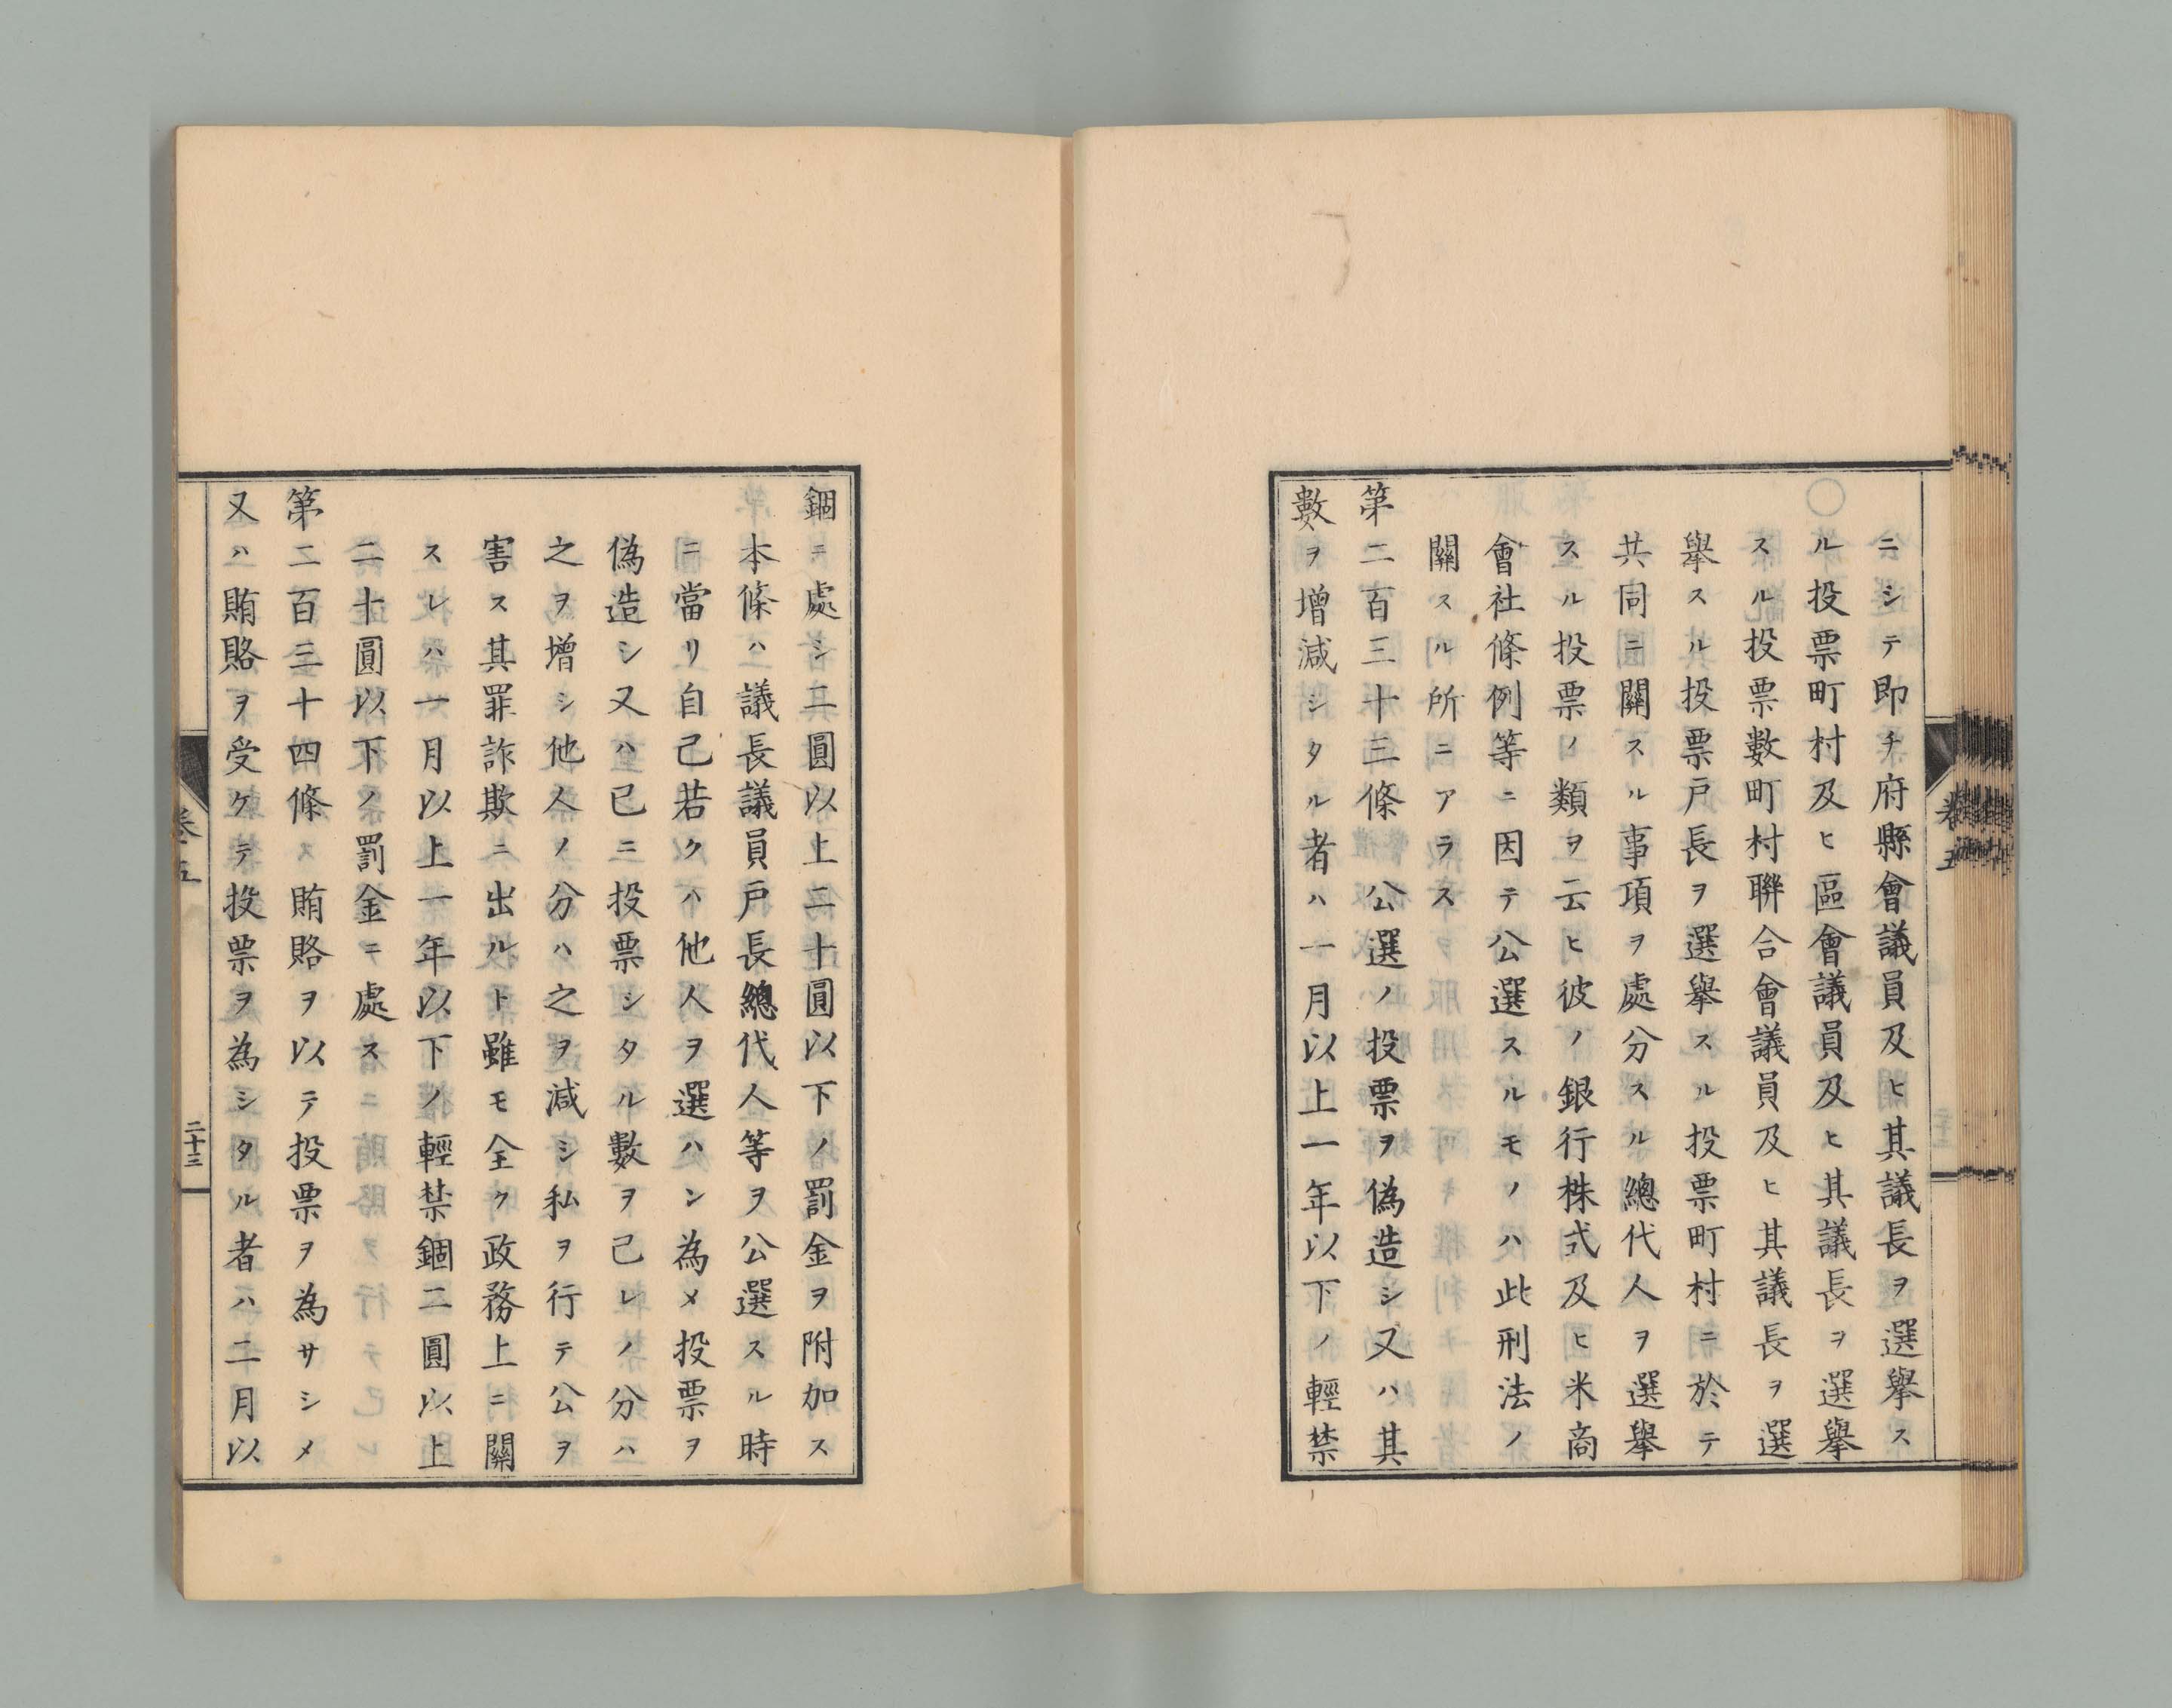 ニシテ即チ府縣會議員及ヒ其議長ヲ選擧ス
ル投票町村及ヒ區會議員及ヒ其議長ヲ選擧
スル投票數町村聯合會議員及ヒ其議長ヲ選
擧スル投票戸長ヲ選擧スル投票町村ニ於テ
共同ニ關スル事項ヲ處分スル總代人ヲ選擧
スル投票ノ類ヲ云ヒ彼ノ銀行株式及ヒ米商
會社條例等ニ因テ公選スルモノハ此刑法ノ
關スル所ニアラス
第二百三十三條 公選ノ投票ヲ偽造シ又ハ其
數ヲ增減シタル者ハ一月以上一年以下ノ輕禁
錮ニ處シ二圓以上二十圓以下ノ罰金ヲ附加ス
本條ハ議長議員戸長總代人等ヲ公選スル時
ニ當リ自己若クハ他人ヲ選ハン為メ投票ヲ
偽造シ又ハ已ニ投票シタル數ヲ己レノ分ハ
之ヲ增シ他人ノ分ハ之ヲ減シ私ヲ行テ公ヲ
害ス其罪詐欺ニ出ルト雖モ全ク政務上ニ關
スレハ一月以上一年以下ノ輕禁錮二圓以上
二十圓以下ノ罰金ニ處ス
第二百三十四條 賄賂ヲ以テ投票ヲ為サシメ
又ハ賄賂ヲ受ケテ投票ヲ為シタル者ハ二月以
卷五
二十三